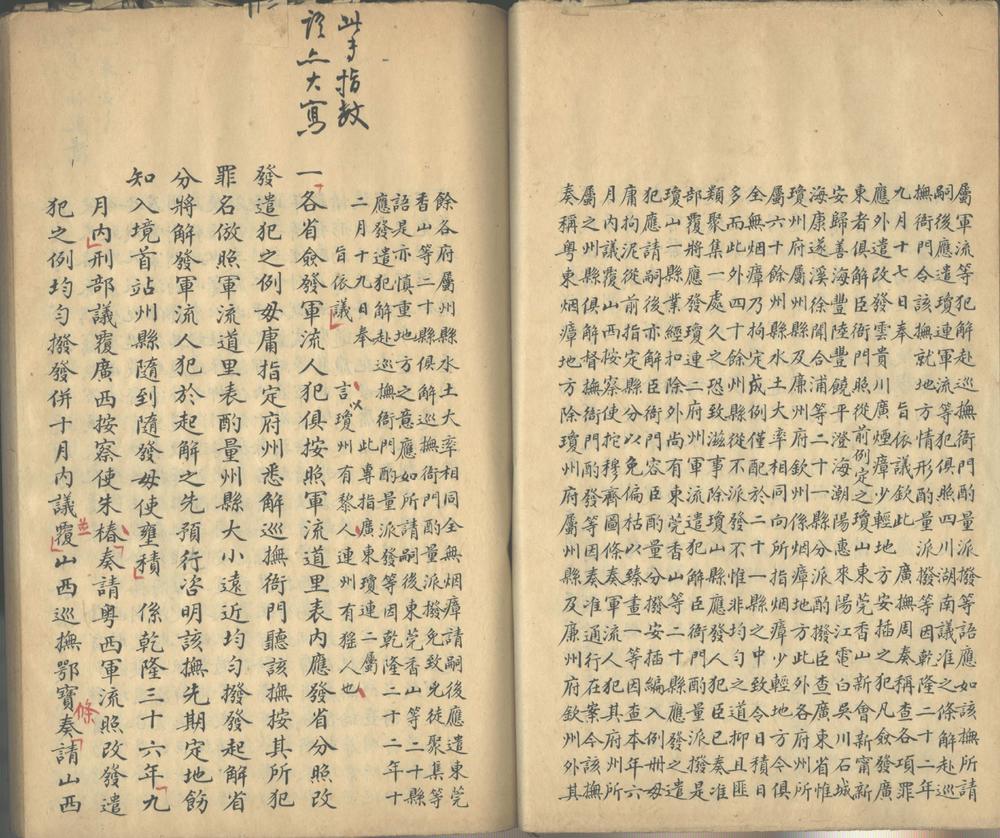 屬軍流等犯連解赴巡撫衙門酌量派撥等語應如該撫所請
嗣後應遣軍流等犯俱照四川湖南議准之條解赴巡
撫衙門應令該撫就地方情形酌量派撥等因乾隆二十二年
九月十七日奉 旨依議欽此 廣撫周奏稱查各項罪
應外遣改發雲貴川廣煙瘴少輕地方安插之犯凡僉發廣
東者俱臣衙門照從前例定之東莞香山新會新寧新
安歸善海豐陸豐饒平澄海潮陽惠來陽江電白吳川石城
海康遂溪徐聞合浦等二十一縣分派酌撥臣查廣東省惟
瓊州府屬州縣及廉州府欽州係烟瘴地方此外各府州所
屬六十餘州縣水土大率相同向所指地方今俱
全無烟瘴乃拘定成例僅配於二十一縣之中致令日積日
多而此外四十餘州縣從不派發不惟非均勻之道抑且匪
類聚集一處久之恐致滋事除瓊山縣應發人犯臣已奏准
部覆將應發瓊連二府州軍流犯解臣衙門酌量派撥是
瓊山一縣業經扣除外尚有東莞香山等二十縣應發之遣
犯應請嗣後亦解臣衙門容臣酌量分撥安插編入例冊毋
庸拘泥從前指定縣分以免偏枯以臻畫一等因查本年六
月內議覆山西按察使拕穆齊圖條奏軍流人犯其府州所
屬之州縣俱解督撫衙門酌發等因奏准通行在案今該撫
奏稱粵東烟瘴地方除瓊州府屬州縣及廉州府欽州外其
餘各府屬州縣水土大率相同全無烟瘴請嗣後應遣東莞
香山等二十縣俱解巡撫衙門酌量派撥免致兇徒聚集等
語是亦慎重地方之意應如所請嗣後東莞香山等二十縣
應發遣犯解赴巡撫衙門酌量派發等因乾隆二十二年十
二月十九日奉 旨依議 此專指廣東瓊連二屬
言瓊州有黎人連州有猺人也
以
此等指教
語亦大寫
一各省僉發軍流人犯俱按照軍流道里表內應發省分照改
發遣犯之例毋庸指定府州悉解巡撫衙門聽該撫按其所犯
罪名倣照軍流道里表酌量州縣大小遠近均勻撥發起解省
分將解發軍流人犯於起解之先預行咨明該撫先期定地飭
知入境首站州縣隨到隨發毋使壅積 係乾隆三十六年九
月內刑部議覆廣西按察使朱椿奏請粵西軍流照改發遣
犯之例均勻撥發併十月內議覆山西巡撫鄂寶奏請山西
並
條